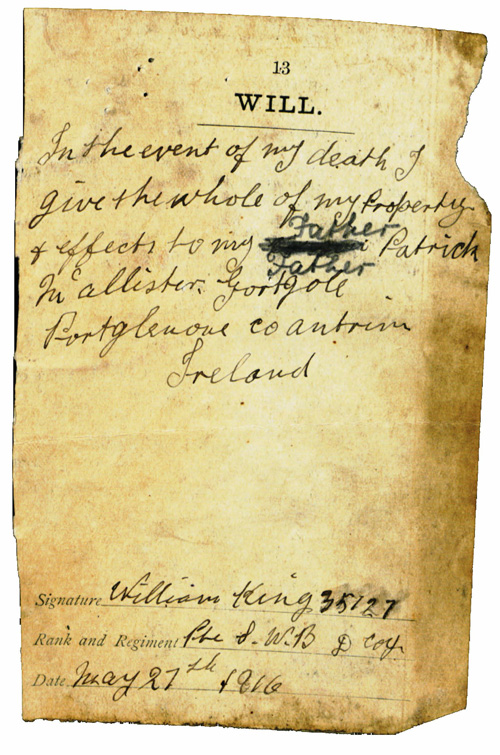 13
WILL.
In the event of my death I
give the whole of my Property
Father
& effects to my Patrick
Father
McAllister. Gortgole
Portglenone co antrim
Ireland
Signature William King 35127
Rank and Regiment Pte S.W.B D Coy
Date May 27th 1916